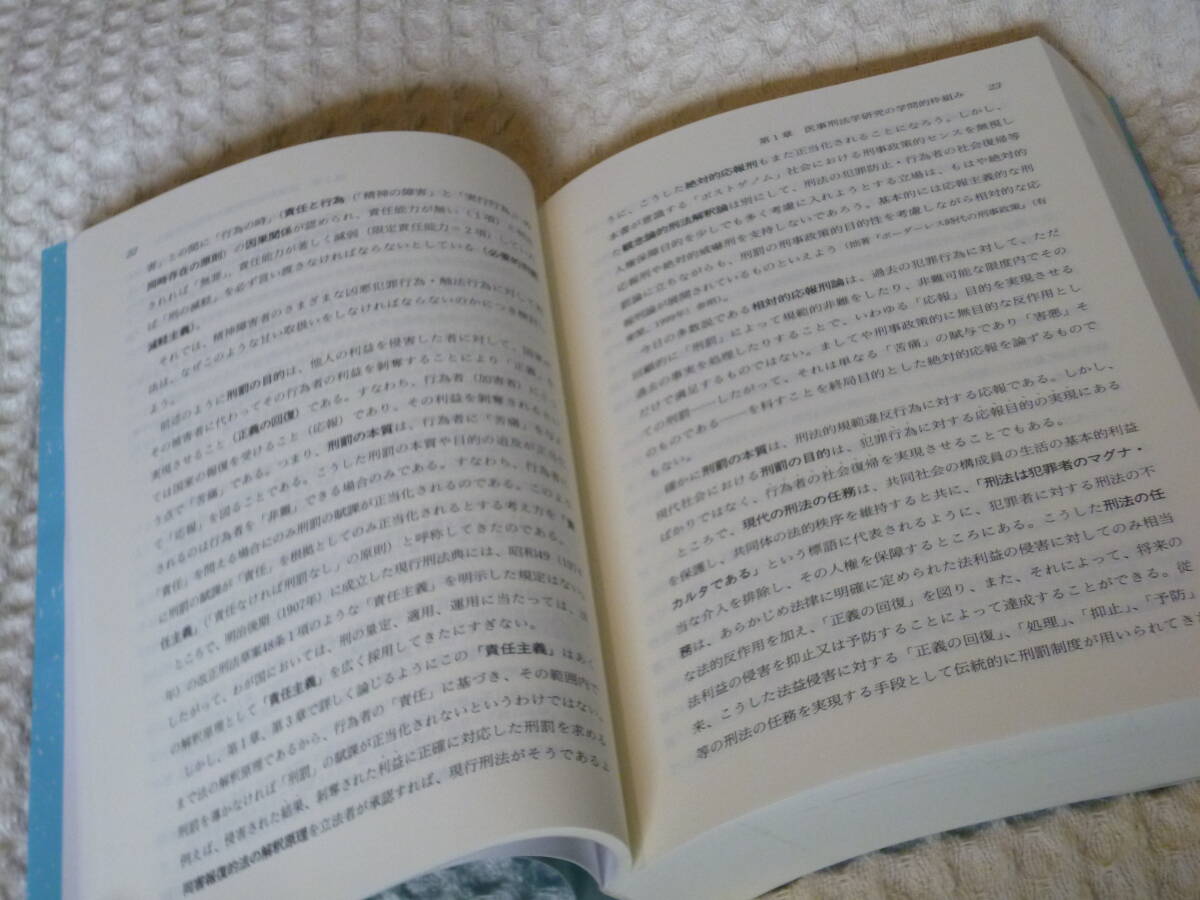 22
者」との間に「行為の時」（責任と行為（「精神の障害」と「実行行為」の
同時存在の原則）の因果関係が認められ、責任能力が無い（1項）と
されれば「無罪」、責任能力が著しく減弱（限定責任能力＝2項）して
ば「刑の減軽」を必ず言い渡さなければならないとしている（必要的
減軽主義）。
それでは、精神障害者のさまざまな凶悪犯罪行為・触法行為に対して
法は、なぜこのような甘い取扱いをしなければならないのかにつき検討し
よう。
前述のように刑罰の目的は、他人の利益を侵害した者に対して、国家が
その被害者に代わってその行為者の利益を剥奪することにより「正義」を
実現させること（正義の回復）である。すなわち、行為者（加害者）にとっ
ては国家の報復を受けること（応報）であり、その利益を剥奪されるとい
う点で「苦痛」である。つまり、刑罰の本質は、行為者に「苦痛」を
て「応報」を図ることである。こうした刑罰の本質や目的の追及が正当化
されるのは行為者を「非難」できる場合のみである。すなわち、行為者に
「責任」を問える場合にのみ刑罰の賦課が正当化されるのである。このよう
に刑罰の賦課が「責任」を根拠としてのみ正当化されるとする考え方を「責
任主義」（「責任なければ刑罰なし」の原則）と呼称してきたのである。
ところで、明治後期（1907年）に成立した現行刑法典には、昭和49（1974
年）の改正刑法草案48条1項のような「責任主義」を明示した規定はない。
したがって、わが国においては、刑の量定、適用、運用に当たっては、
の解釈原理として「責任主義」を広く採用してきたにすぎない。
しかし、第1章、第3章で詳しく論じるようにこの「責任主義」はあく
まで法の解釈原理であるから、行為者の「責任」に基づき、その範囲内で
刑罰を導かなければ「刑罰」の賦課が正当化されないというわけではない。
例えば、侵害された結果、剥奪された利益に正確に対応した刑罰を求める
同害報復的法の解釈原理を立法者が承認すれば、現行刑法がそうであるよ
第1章　医事刑法学研究の学問的枠組み　23
うに、こうした絶対的応報刑もまた正当化されることになろう。しかし、
本書が意識する「ポストゲノム」社会における刑事政策的センスを無視し
た観念論的刑法解釈論は別にして、刑法の犯罪防止・行為者の社会復帰等
人権保障目的を少しでも多く考慮に入れようとする立場は、もはや絶対的
応報刑や絶対的威嚇刑を支持しないであろう。基本的には応報主義的な刑
罰論に立ちながらも、刑罰の刑事政策的目的性を考慮しながら相対的な応
報刑論が展開されているものといえよう（拙著『ボーダーレス時代の刑事政策』（有
斐閣、1999年）参照）。
今日の多数説である相対的応報刑論は、過去の犯罪行為に対して、ただ
回顧的に「刑罰」によって規範的非難をしたり、非難可能な限度内でその
過去の事実を処理したりすることで、いわゆる「応報」目的を実現させる
だけで満足するものではない。ましてや刑事政策的に無目的な反作用とし
ての刑罰――したがって、それは単なる「苦痛」の賦与であり「害悪」そ
のものである――を科すことを終局目的とした絶対的応報を論ずるもので
もない。
確かに刑罰の本質は、刑法的規範違反行為に対する応報である。しかし、
現代社会における刑罰の目的は、犯罪行為に対する応報目的の実現にある
ばかりではなく、行為者の社会復帰を実現させることでもある。
ところで、現代の刑法の任務は、共同社会の構成員の生活の基本的利益
を保護し、共同体の法的秩序を維持すると共に、「刑法は犯罪者のマグナ・
カルタである」という標語に代表されるように、犯罪者に対する刑法の不
当な介入を排除し、その人権を保障するところにある。こうした刑法の任
務は、あらかじめ法律に明確に定められた法利益の侵害に対してのみ相当
な法的反作用を加え、「正義の回復」を図り、また、それによって、将来の
法利益の侵害を抑止又は予防することによって達成することができる。従
来、こうした法益侵害に対する「正義の回復」、「処理」、「抑止」、「予防」
等の刑法の任務を実現する手段として伝統的に刑罰制度が用いられてきた